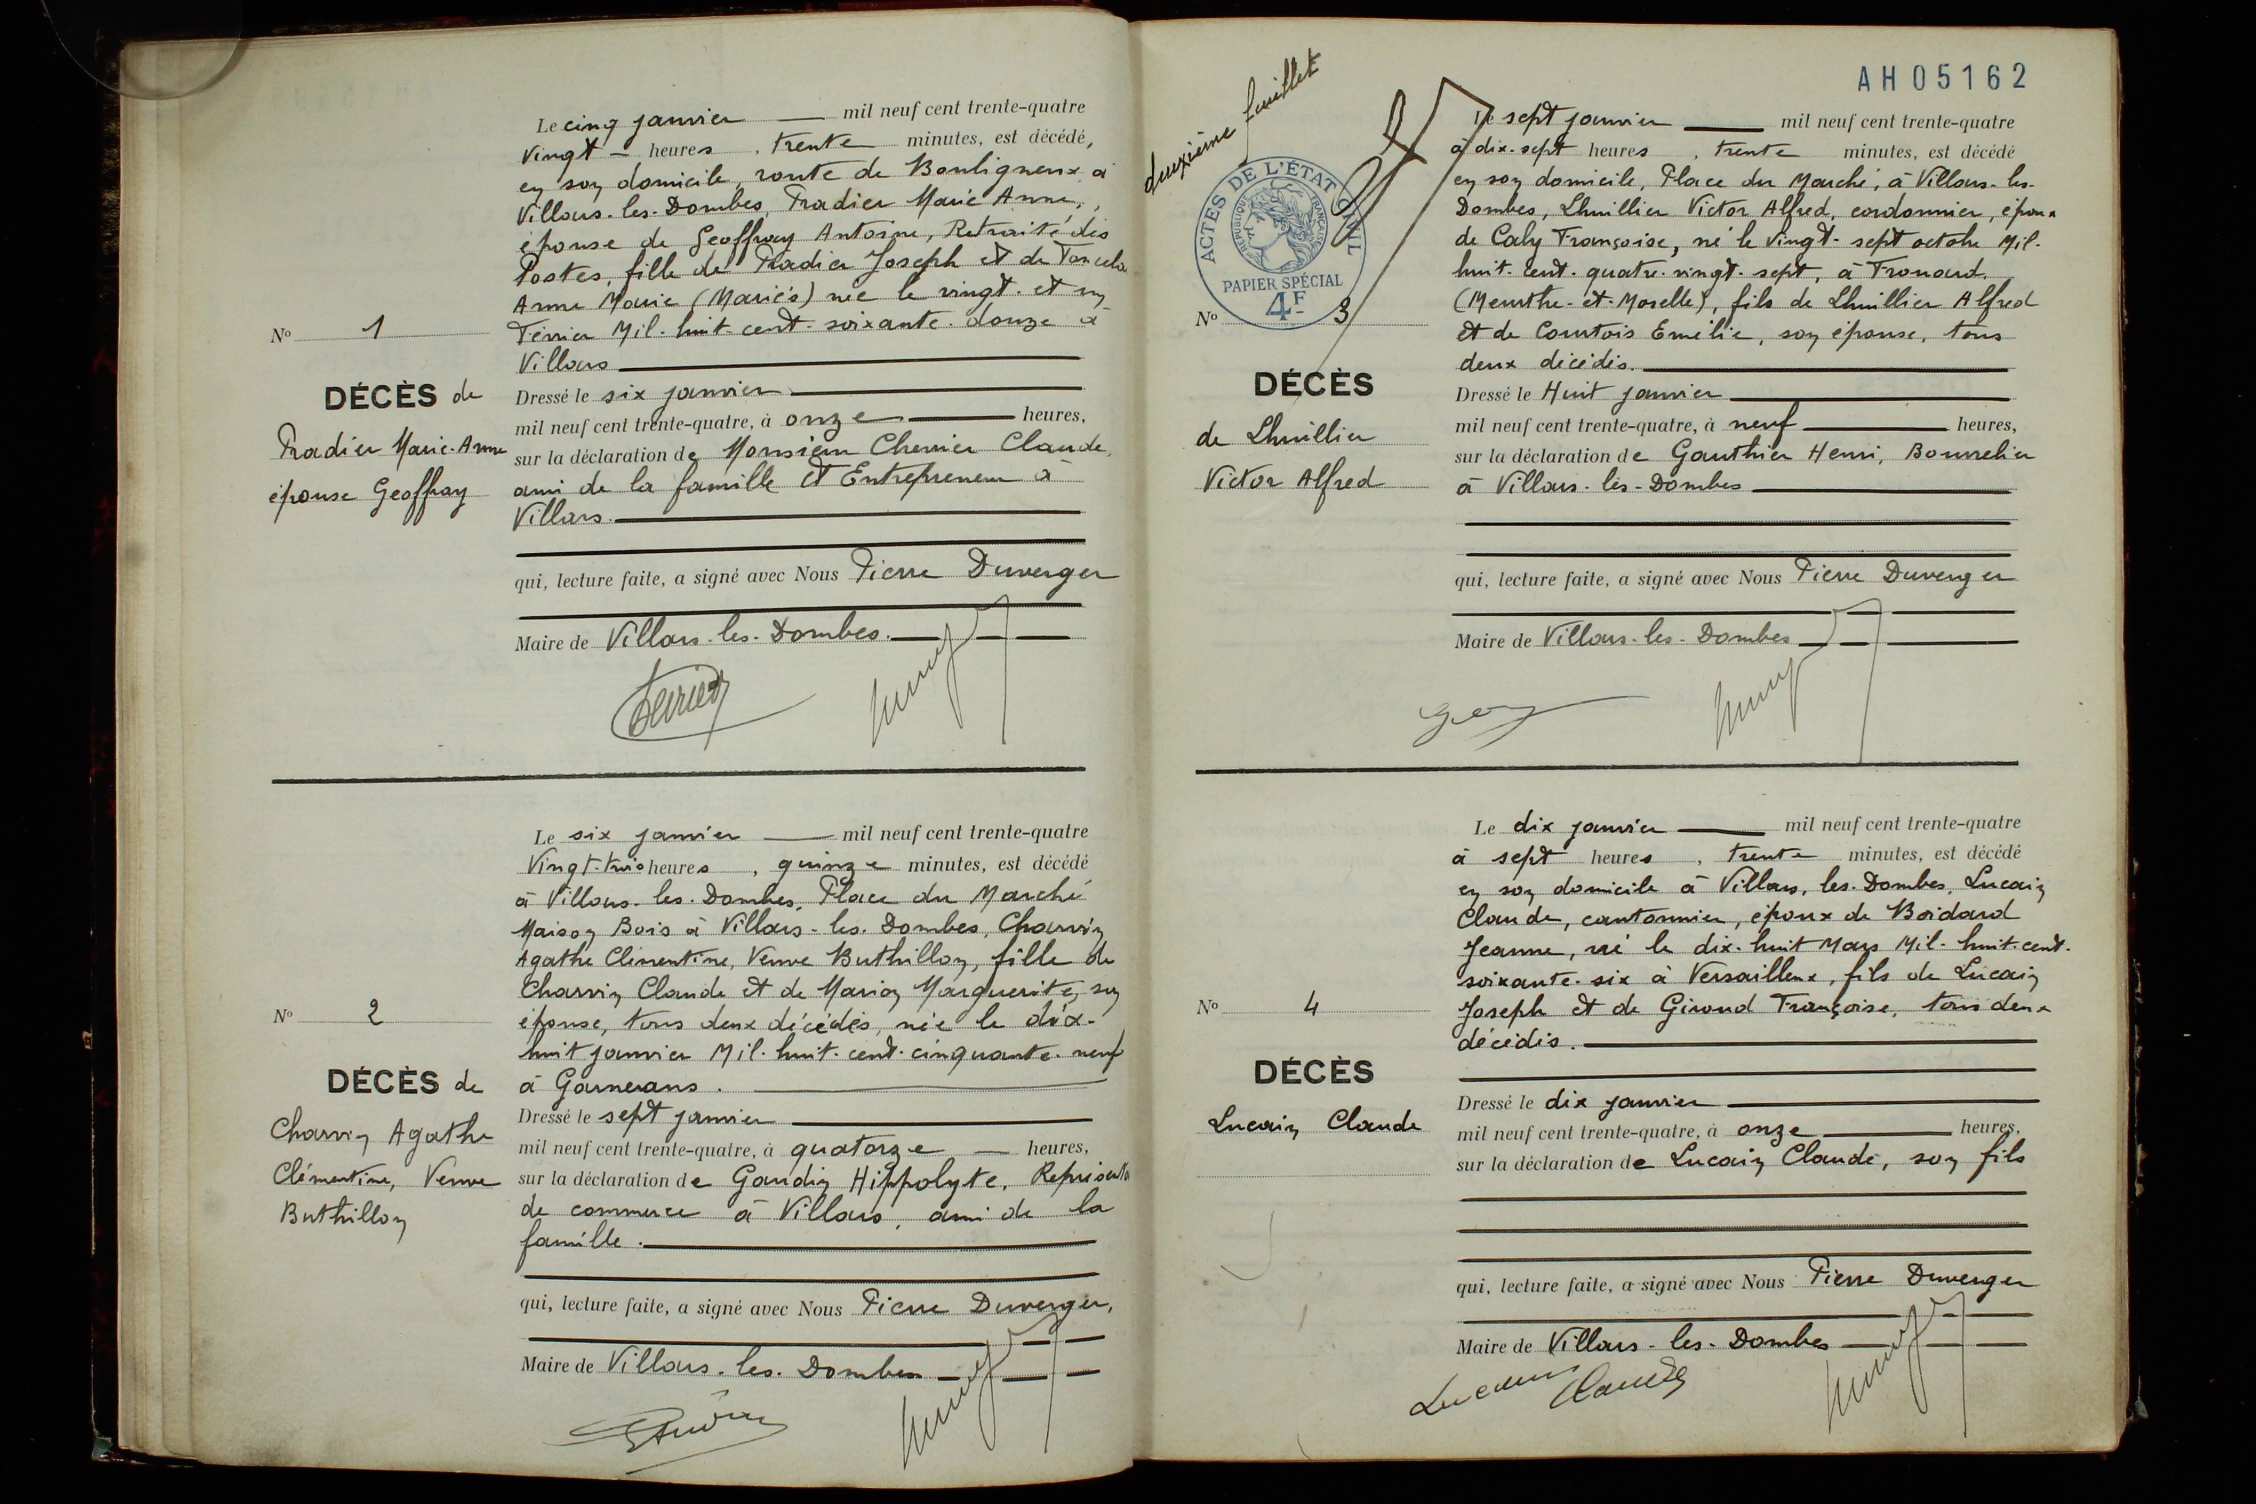 Le cinq janvier mil neuf cent trente-quatre
Vingt heures, trente minutes, est décédé,
en son domicile, route de Bouligneux à
Villars-les-Dombes, Pradier Marie Anne,
épouse de Geoffray Antoine, Retraité des
Postes, fille de Pradier Joseph et de
Anne Marie (Mariés) née le vingt-et un
Février Mil-huit-cent-soixante-douze à
Villars
No 1
DÉCÈS de
Pradier Marie-Anne
épouse Geoffray
Dressé le six janvier
mil neuf cent trente-quatre, à onze heures,
sur la déclaration de Monsieur Chervier Claude,
ami de la famille et Entrepreneur à
Villars.
qui, lecture faite, a signé avec Nous Pierre Duverger
Maire de Villars-les-Dombes.
Le six janvier mil neuf cent trente-quatre
Vingt-trois heures, quinze minutes, est décédé
à Villars-les-Dombes, Place du Marché
Maison Bois à Villars-les-Dombes, Charvin
Agathe Clémentine, Veuve Buthillon, fille de
Charvin Claude et de Marion Marguerite, son
épouse, tous deux décédés, née le dix-
huit janvier Mil-huit-cent-cinquante-neuf
à Garnerans.
No 2
DÉCÈS de
Charvin Agathe
Clémentine, Veuve
Buthillon
Dressé le sept janvier
mil neuf cent trente-quatre, à quatorze heures,
sur la déclaration de Gaudin Hippolyte, Représentant
de commerce à Villars, ami de la
famille.
qui, lecture faite, a signé avec Nous Pierre Duverger,
Maire de Villars-les-Dombes
AH05162
deuxième feuillet
ACTES DE L'ÉTAT CIVIL
RÉPUBLIQUE FRANÇAISE
PAPIER SPÉCIAL
4F
Le sept janvier mil neuf cent trente-quatre
à dix-sept heures, trente minutes, est décédé
en son domicile, Place du Marché, à Villars-les-
Dombes, Lhuillier Victor Alfred, cordonnier, époux
de Caby Françoise, né le vingt-sept octobre Mil-
huit-cent-quatre-vingt-sept, à Frouard
(Meurthe-et-Moselle), fils de Lhuillier Alfred
et de Courtois Emélie, son épouse, tous
deux décédés.
No 3
DÉCÈS
de Lhuillier
Victor Alfred
Dressé le Huit janvier
mil neuf cent trente-quatre, à neuf heures,
sur la déclaration de Gauthier Henri, Bourrelier
à Villars-les-Dombes
qui, lecture faite, a signé avec Nous Pierre Duverger
Maire de Villars-les-Dombes
Le dix janvier mil neuf cent trente-quatre
à sept heures, trente minutes, est décédé
en son domicile à Villars-les-Dombes, Lucain
Claude, cantonnier, époux de Boidard
Jeanne, né le dix-huit Mars Mil-huit-cent-
soixante-six à Versailleux, fils de Lucain
Joseph et de Giroud Françoise, tous deux
décédés.
No 4
DÉCÈS
Lucain Claude
Dressé le dix janvier
mil neuf cent trente-quatre, à onze heures,
sur la déclaration de Lucain Claude, son fils
qui, lecture faite, a signé avec Nous Pierre Duverger
Maire de Villars-les-Dombes
Lucain Claude